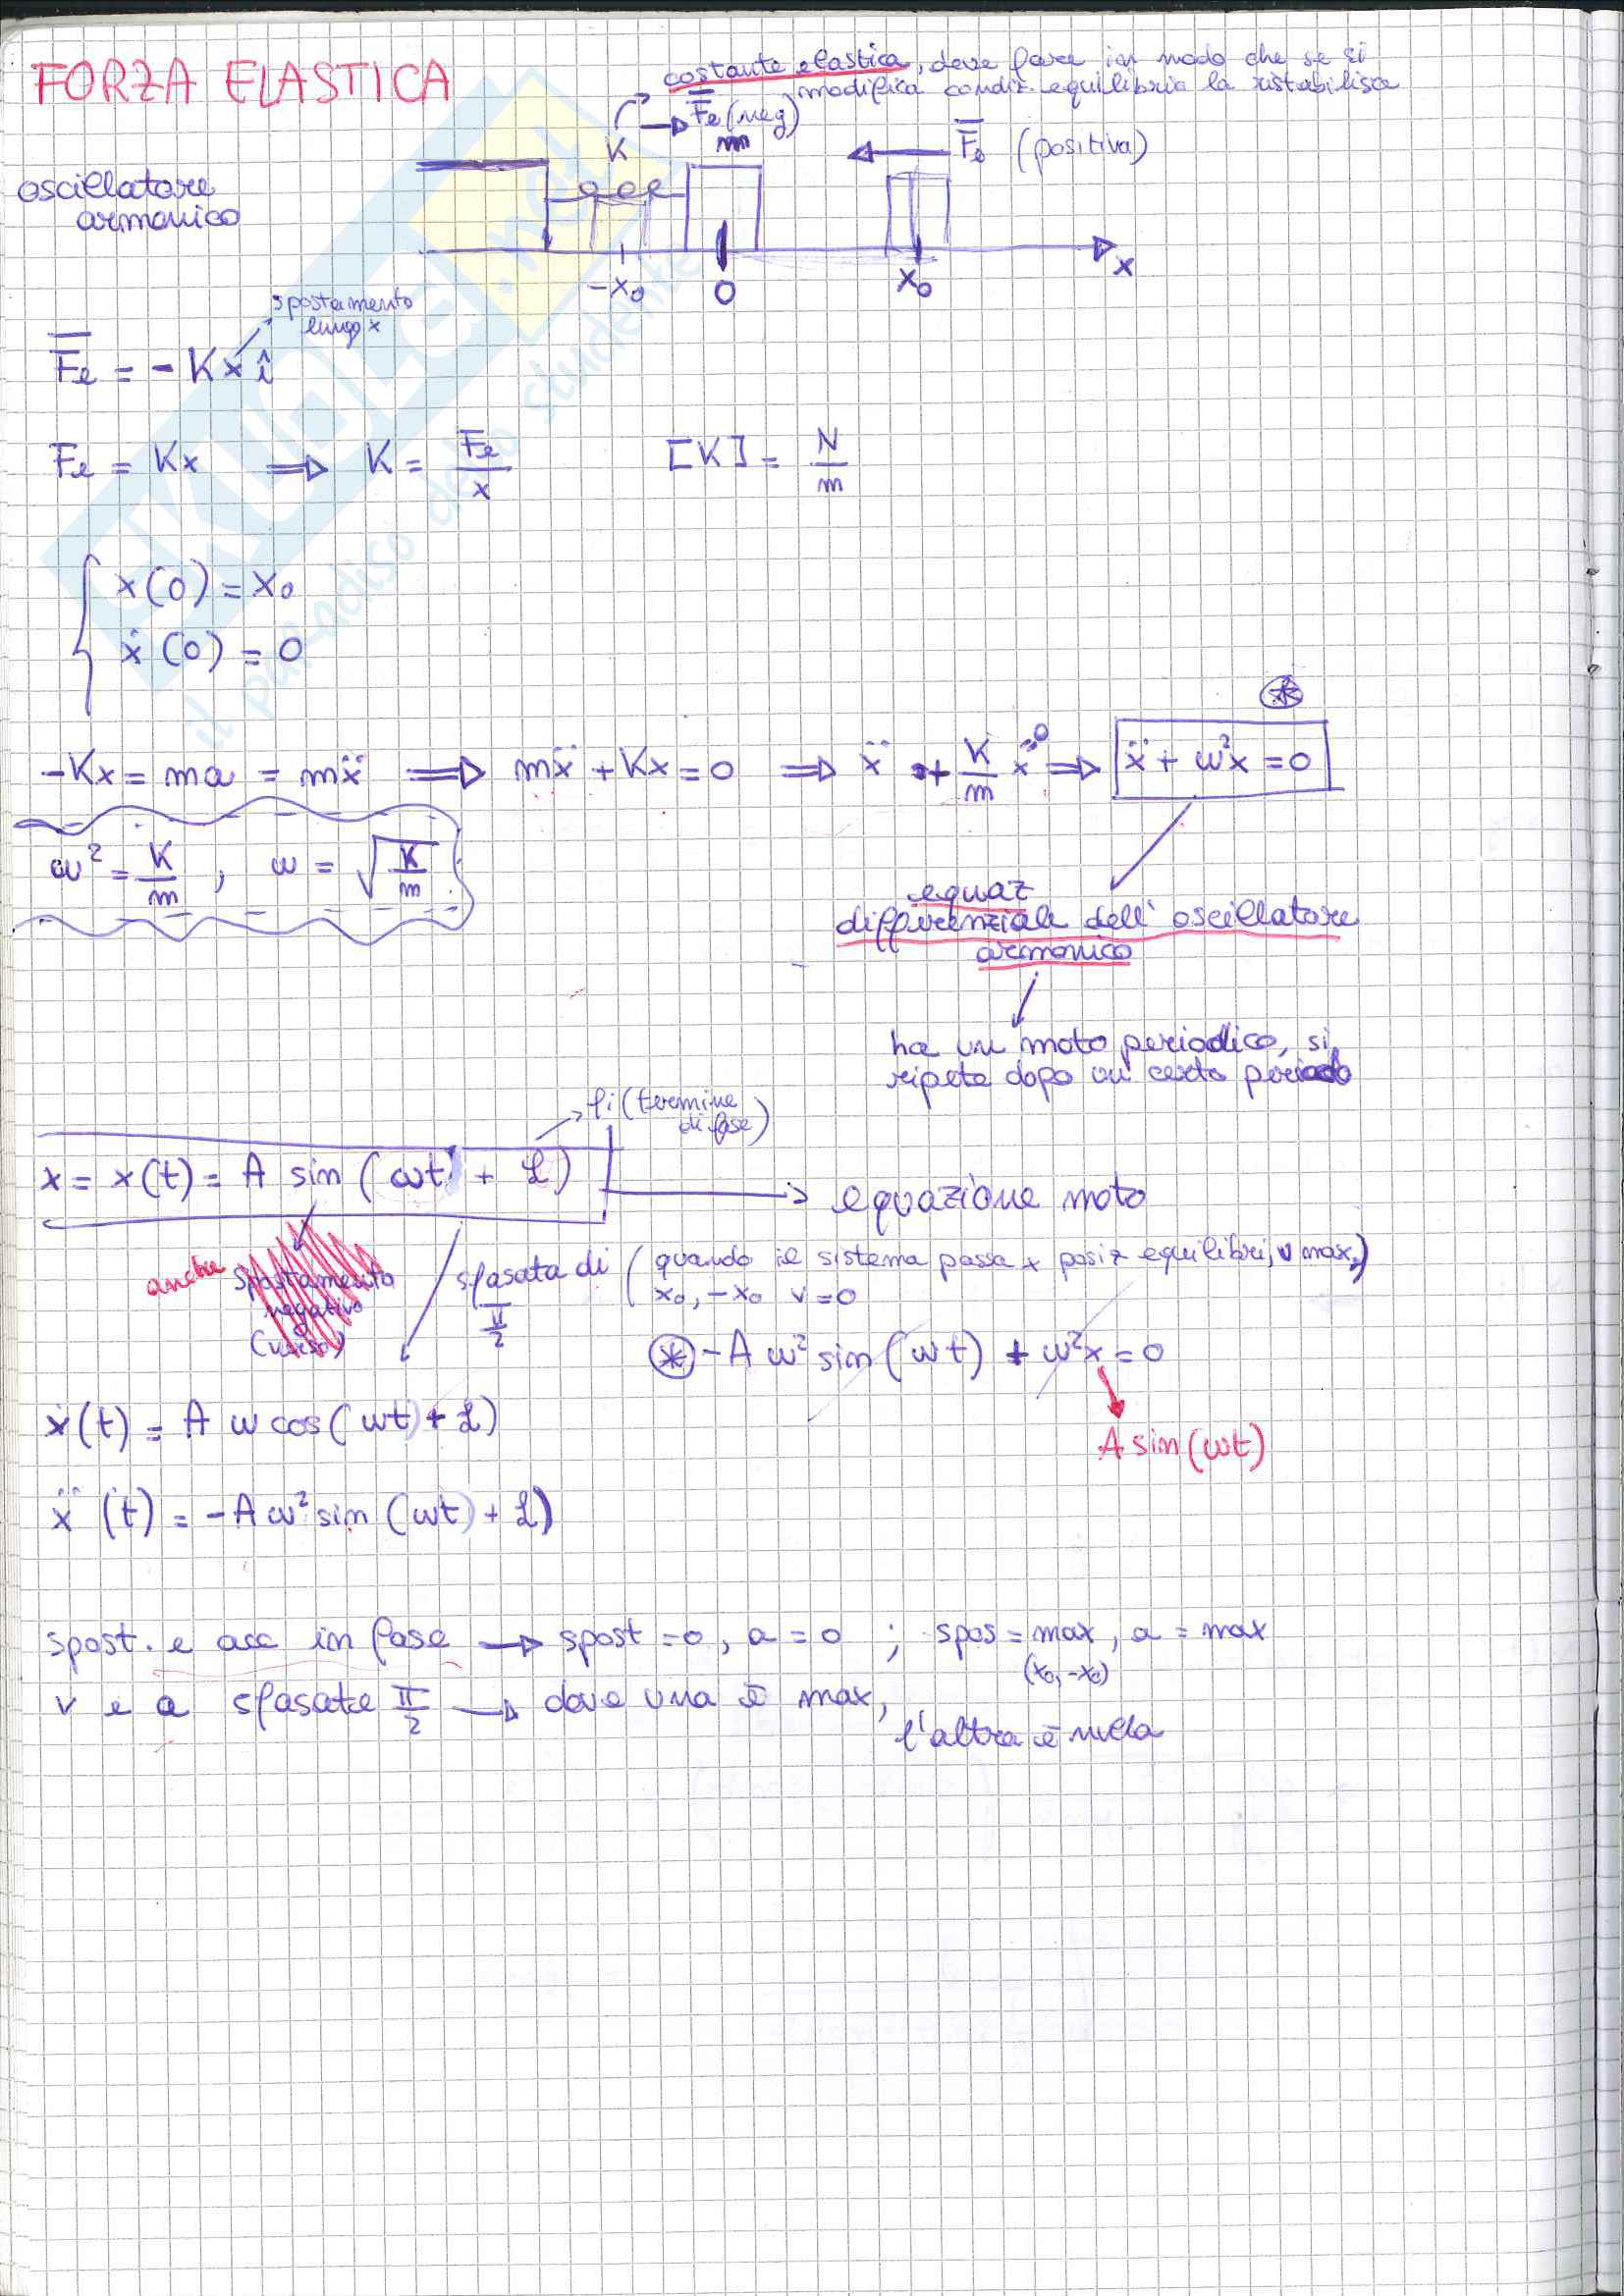 FORZA ELASTICA
costante elastica, deve fare in modo che se si
modifica condiz. equilibrio la ristabilisca
K
Fe (neg)
m
Fe (positiva)
oscillatore
armonico
-x₀ 0 x₀ x
spostamento
lungo x
Fe = - K x î
Fe = Kx ⟹ K = Fe/x [K] = N/m
x(0) = x₀
ẋ(0) = 0
-Kx = ma = mẍ ⟹ mẍ + Kx = 0 ⟹ ẍ + K/m x = 0 ⟹ ẍ + ω²x = 0 ⊛
ω² = K/m , ω = √(K/m)
equaz
differenziale dell'oscillatore
armonico
ha un moto periodico, si
ripete dopo un certo periodo
fi (termine
di fase)
x = x(t) = A sin (ωt + φ) → equazione moto
anche spostamento
negativo
(verso)
sfasata di π/2 (quando il sistema passa x posiz equilibri, v max,)
x₀, -x₀ v = 0
⊛ - A ω² sin (ωt) + ω²x = 0
A sin (ωt)
ẋ(t) = A ω cos (ωt + φ)
ẍ(t) = -A ω² sin (ωt) + φ)
spost. e acc in fase → spost = 0, a = 0 ; spos = max, a = max
(x₀, -x₀)
v e a sfasate π/2 → dove una è max,
l'altra è nulla
il paradiso dello studente